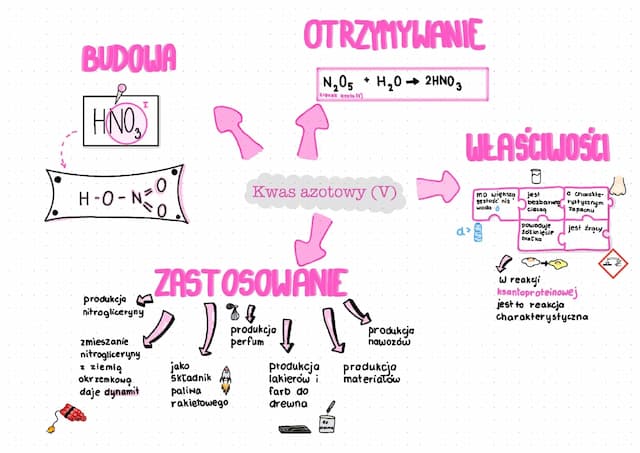 OTRZYMYWANIE
N₂O₅ + H₂O → 2HNO₃
BUDOWA
HNO₃
I
H-O-N
O
O
Kwas azotowy (V)
WŁAŚCIWOŚCI
ma większą
gęstość niż
woda
jest
bezbarwną
cieczą
o charakte-
rystycznym
zapachu
powoduje
żółknięcie
białka
jest żrący
d>
W reakcji
ksantoproteinowej
jest to reakcja
charakterystyczna
ZASTOSOWANIE
produkcja
nitrogliceryny
zmieszanie
nitrogliceryny
z ziemią
okrzemkową
daje dynamit
jako
składnik
paliwa
rakietowego
produkcja
perfum
produkcja
lakierów i
farb do
drewna
produkcja
materiałów
produkcja
nawozów